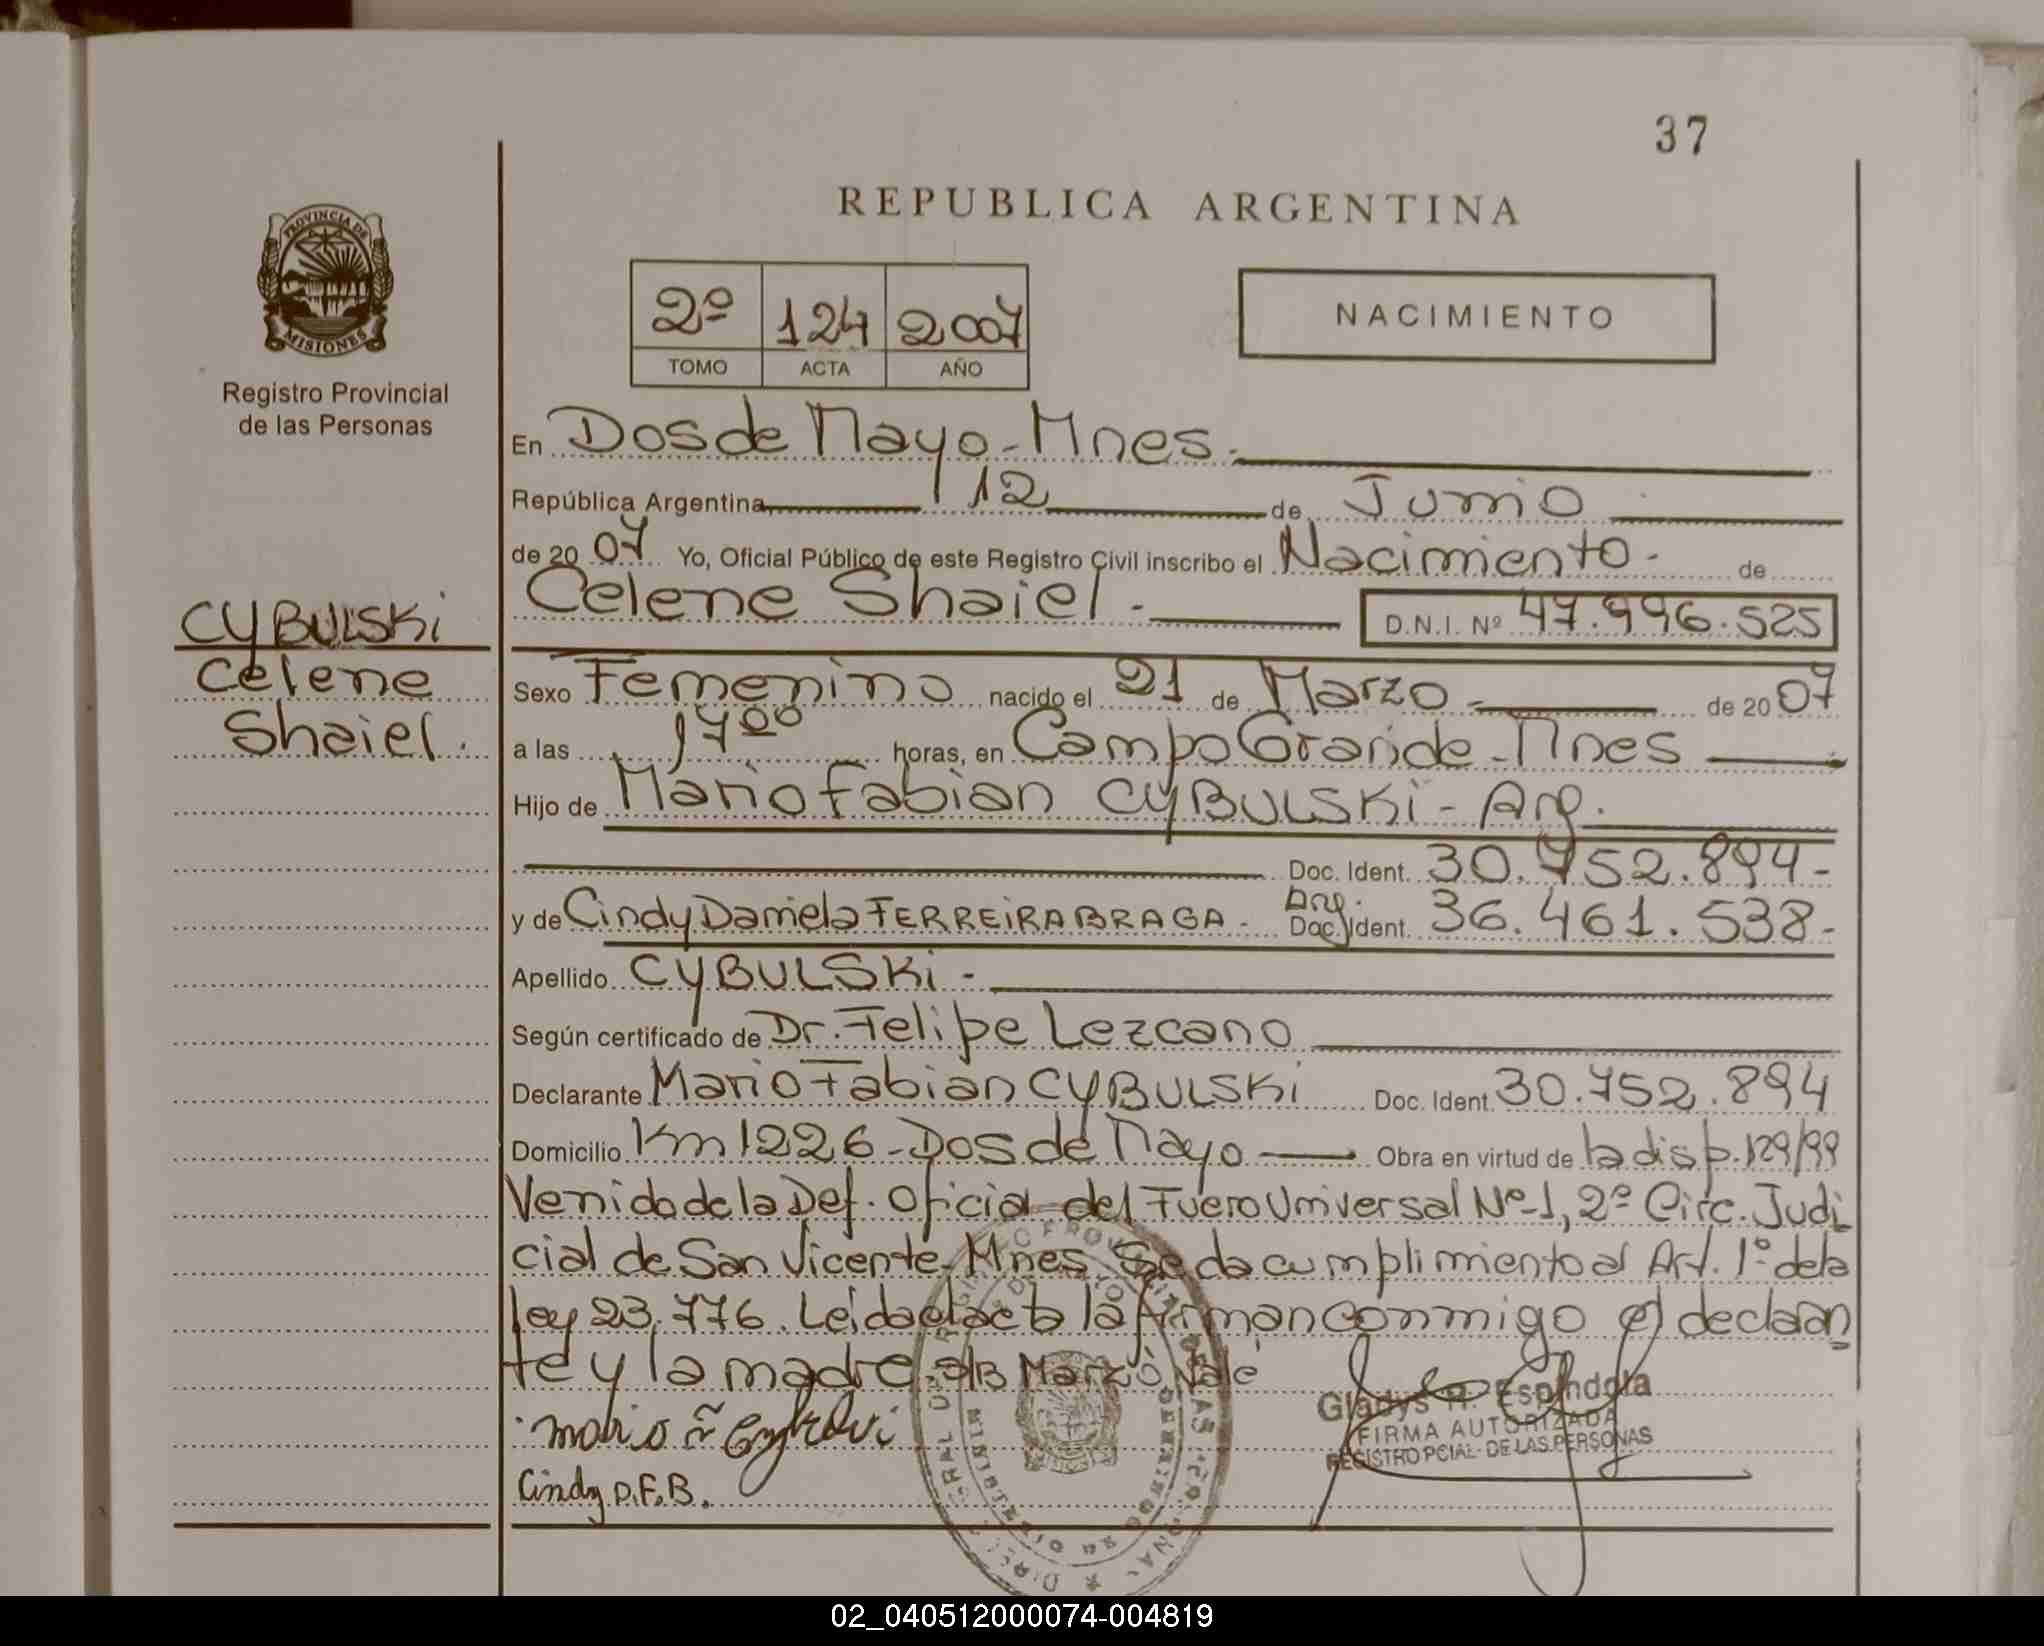 37
REPUBLICA ARGENTINA
PROVINCIA DE
MISIONES
Registro Provincial
de las Personas
2º 124 2007
TOMO ACTA AÑO
NACIMIENTO
En Dos de Mayo - Mnes.
República Argentina, 12 de Junio
de 2007 Yo, Oficial Público de este Registro Civil inscribo el Nacimiento - de
Celene Shaiel - D.N.I. Nº 47.996.525
CYBULSKi
Celene
Shaiel.
Sexo Femenino nacido el 21 de Marzo - de 2007
a las 17 00 horas, en Campo Grande - Mnes
Hijo de Mario Fabian CYBULSKi - Arg.
Doc. Ident. 30.752.894-
y de Cindy Daniela FERREiRA BRAGA - Arg. Doc. Ident. 36.461.538-
Apellido CYBULSKi -
Según certificado de Dr. Felipe Lezcano
Declarante Mario Fabian CYBULSKi Doc. Ident. 30.752.894
Domicilio Km 1226 - Dos de Mayo Obra en virtud de la disp. 129/99
Venido de la Def. Oficial del Fuero Universal Nº 1, 2º Circ. Judi
cial de San Vicente - Mnes. Se da cumplimiento al Art. 1º de la
ley 23.776. Leida el acta la firman conmigo el declaran
te y la madre. Marzo Vale
Cindy D.F.B.
Gladys R. Espindola
FIRMA AUTORIZADA
REGISTRO PCIAL. DE LAS PERSONAS
02_040512000074-004819